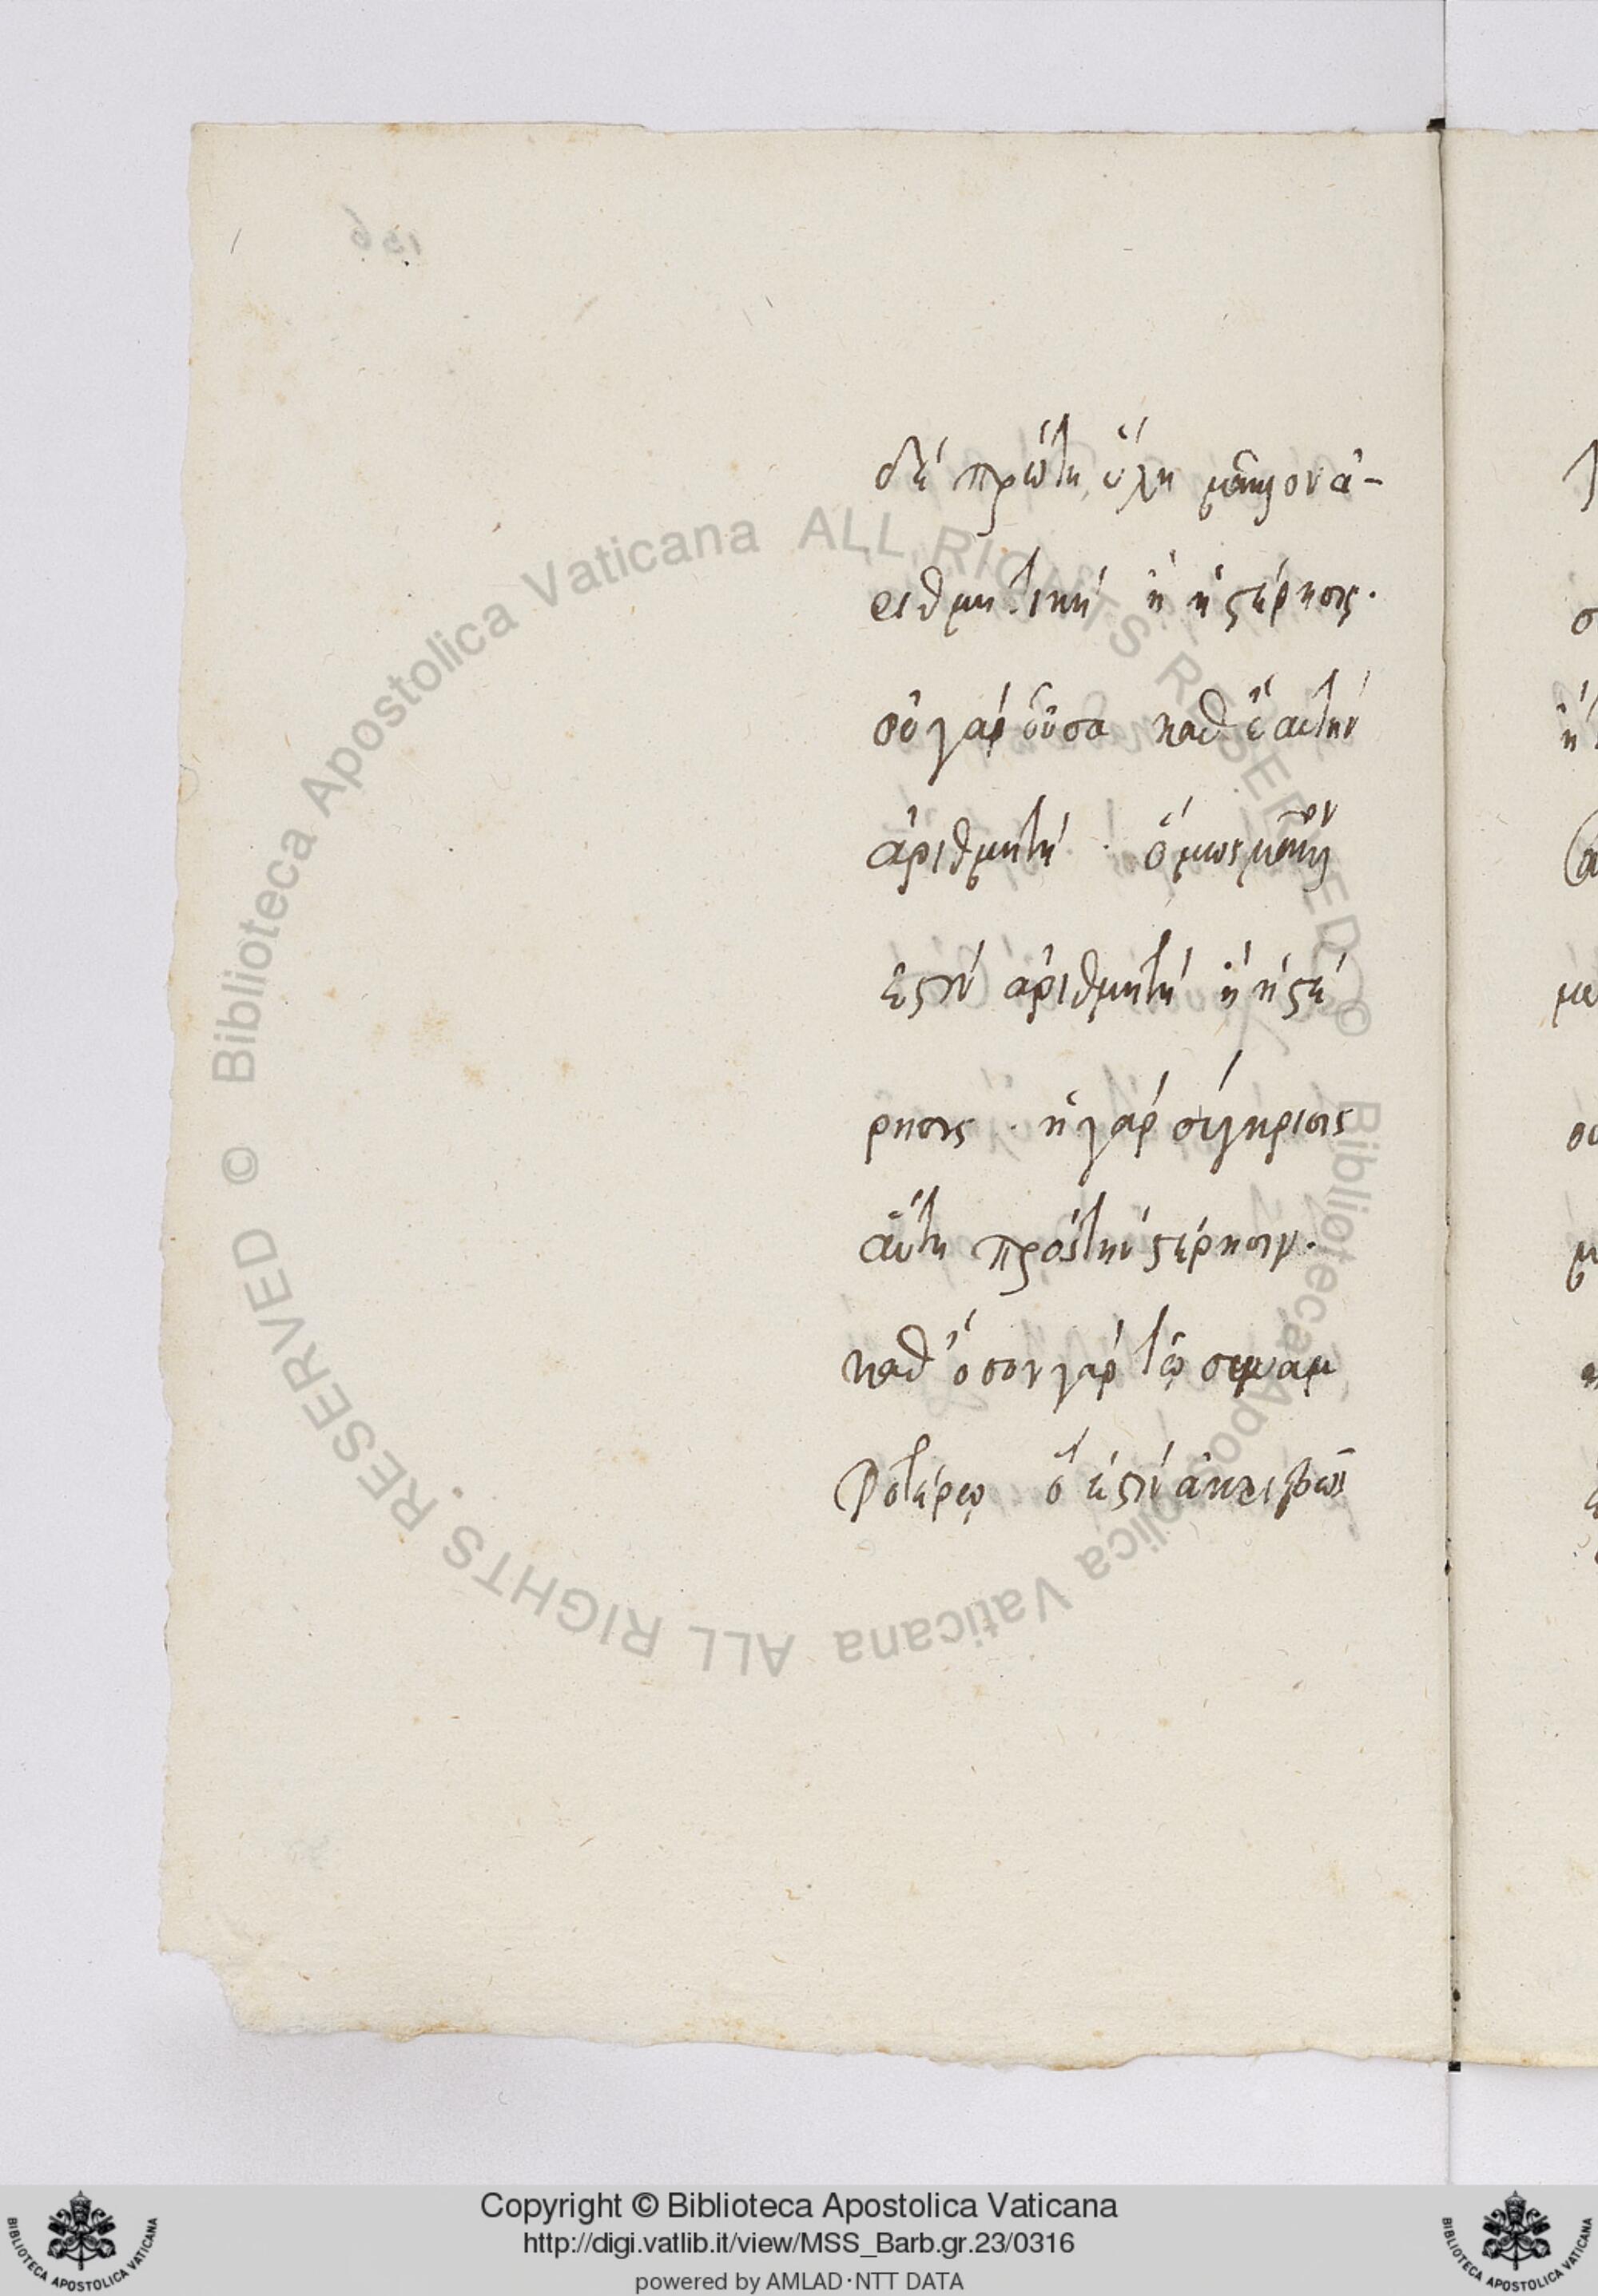 δὲ πρώτη ὕλη μᾶλλον ἀ-
ριθμητικὴ ἢ ἡ στέρησις.
οὐ γὰρ οὖσα καθ ἑαυτὴν
ἀριθμητὴ · ὅμως μᾶλλον
ἐστὶν ἀριθμητὴ ἢ ἡ στέ
ρησις · ἡ γὰρ σύγκρισις
αὕτη πρὸς τὴν στέρησιν.
καθ ὅσον γὰρ τῷ συναμ
φοτέρῳ ὅ ἐστὶν ἀκριβῶς
Copyright © Biblioteca Apostolica Vaticana
http://digi.vatlib.it/view/MSS_Barb.gr.23/0316
powered by AMLAD·NTT DATA
BIBLIOTECA APOSTOLICA VATICANA
BIBLIOTECA APOSTOLICA VATICANA
© Biblioteca Apostolica Vaticana ALL RIGHTS RESERVED
© Biblioteca Apostolica Vaticana ALL RIGHTS RESERVED